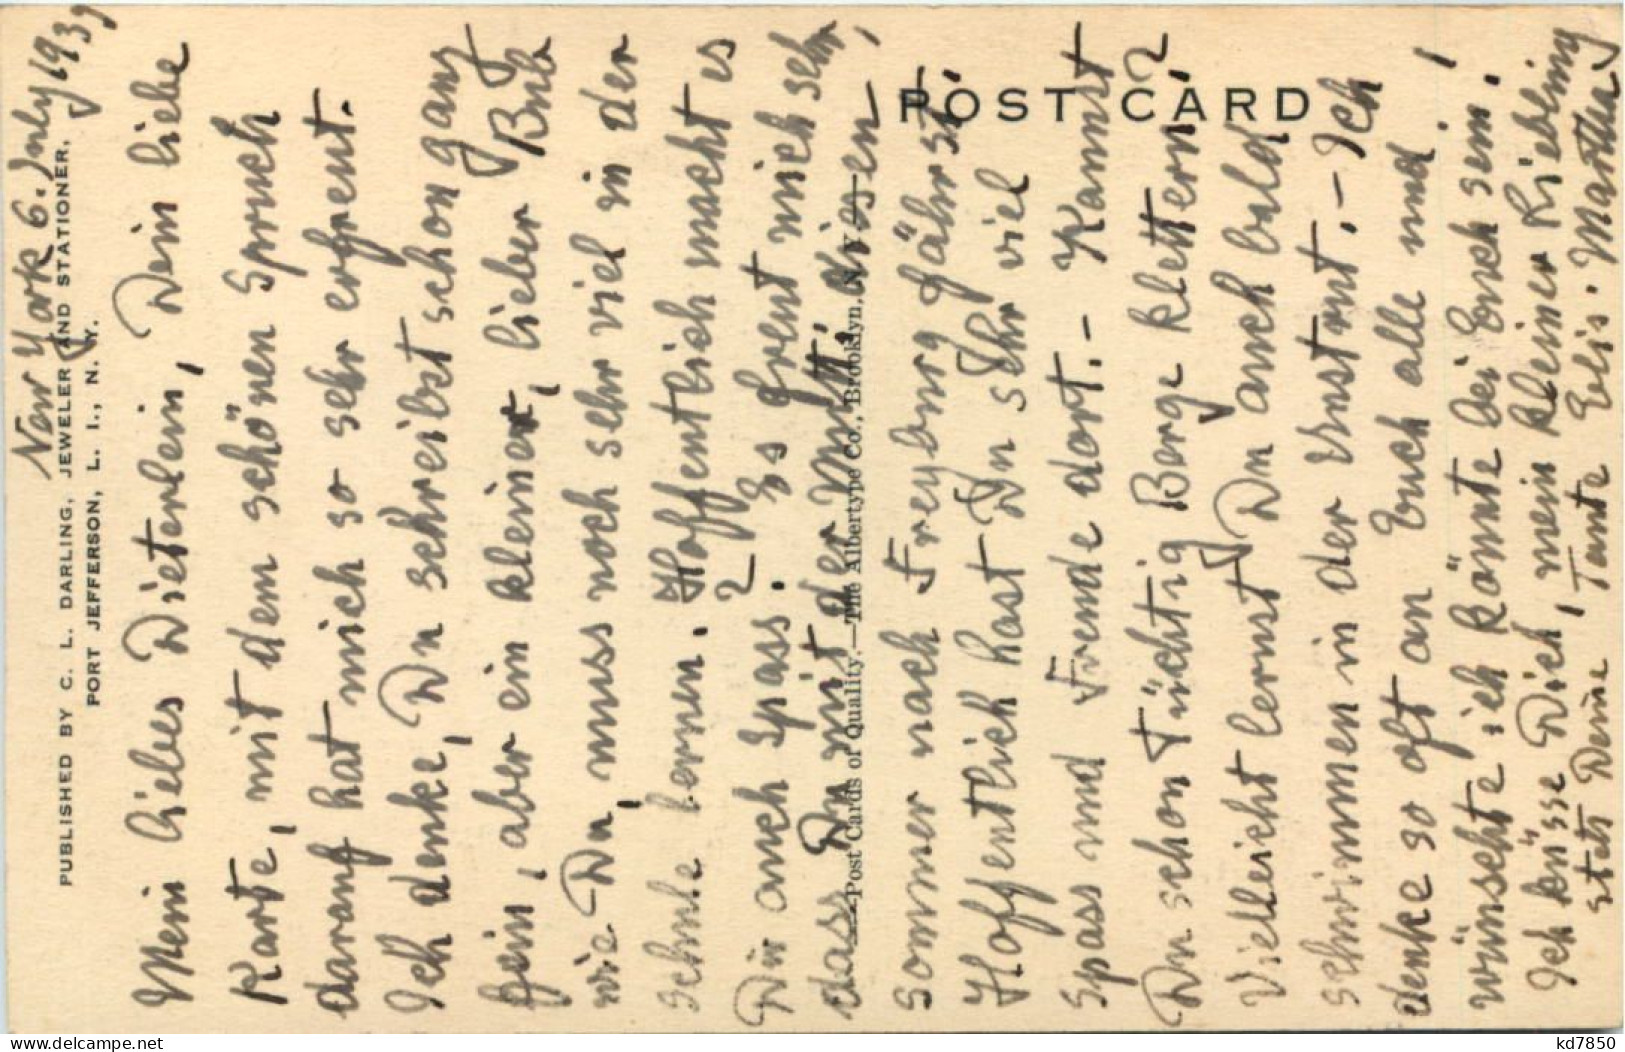 New York 6. July 1939
PUBLISHED BY C. L. DARLING, JEWELER AND STATIONER,
PORT JEFFERSON, L. I., N. Y.
Mein liebes Dieterlein, Dein liebe
Karte, mit dem schönen Spruch
darauf hat mich so sehr erfreut.
Ich denke, Du schreibst schon ganz
fein, aber ein kleiner, lieber Bub
wie Du, muss noch sehr viel in der
Schule lernen. Hoffentlich macht es
Dir auch Spass. ? Es freut mich sehr,
dass Du mit der Mutti diesen
Post Cards of Quality.—The Albertype Co., Brooklyn, N. Y.
POST CARD
Sommer nach Freyburg fährst.
Hoffentlich hast Du sehr viel
Spass und Freude dort. – Kannst
Du schon tüchtig Berge klettern?
Vielleicht lernst Du auch bald
schwimmen in der Unstrut. – Ich
denke so oft an Euch alle und
wünschte ich könnte bei Euch sein!
Ich küsse Dich, mein kleiner Liebling
stets Deine Tante Elis. Martha
kd7850